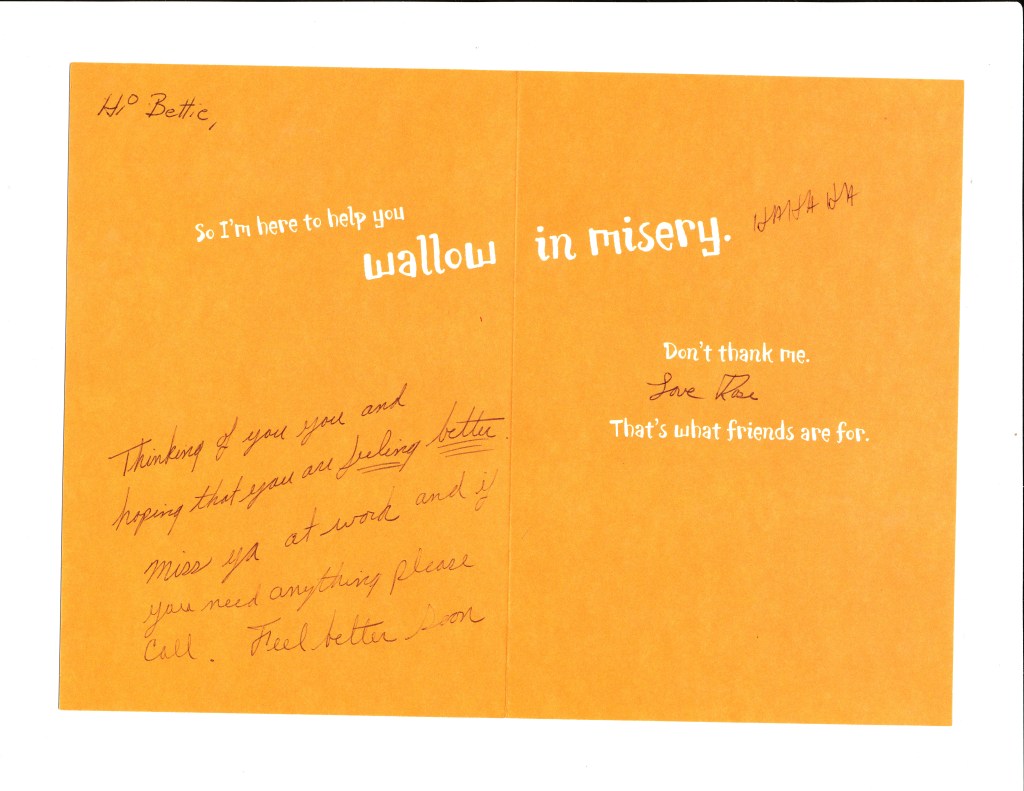 Hi Bettie,
So I'm here to help you
wallow in misery.
HAHA HA
Don't thank me.
Love Rose
That's what friends are for.
Thinking of you you and
hoping that you are feeling better.
Miss ya at word and if
you need anything please
Call. Feel better soon